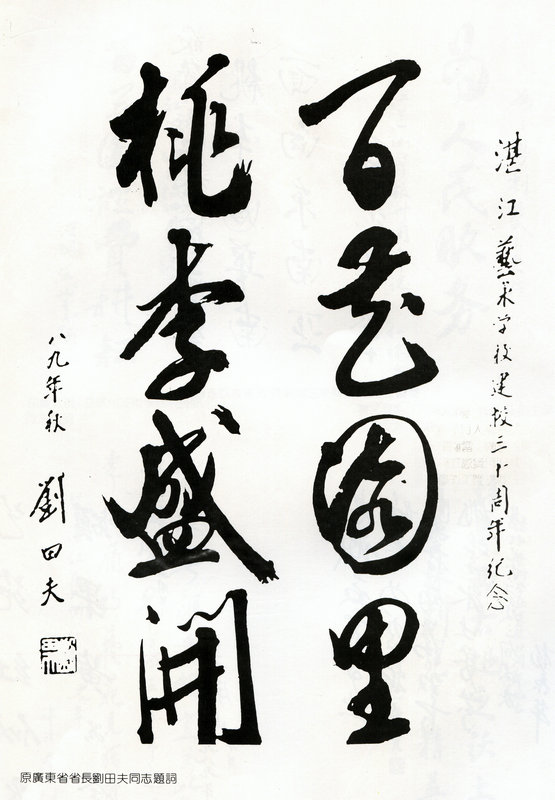 湛江藝术学校建校三十周年纪念
百花园里
桃李盛開
八九年秋
劉田夫
原廣東省省長劉田夫同志題詞